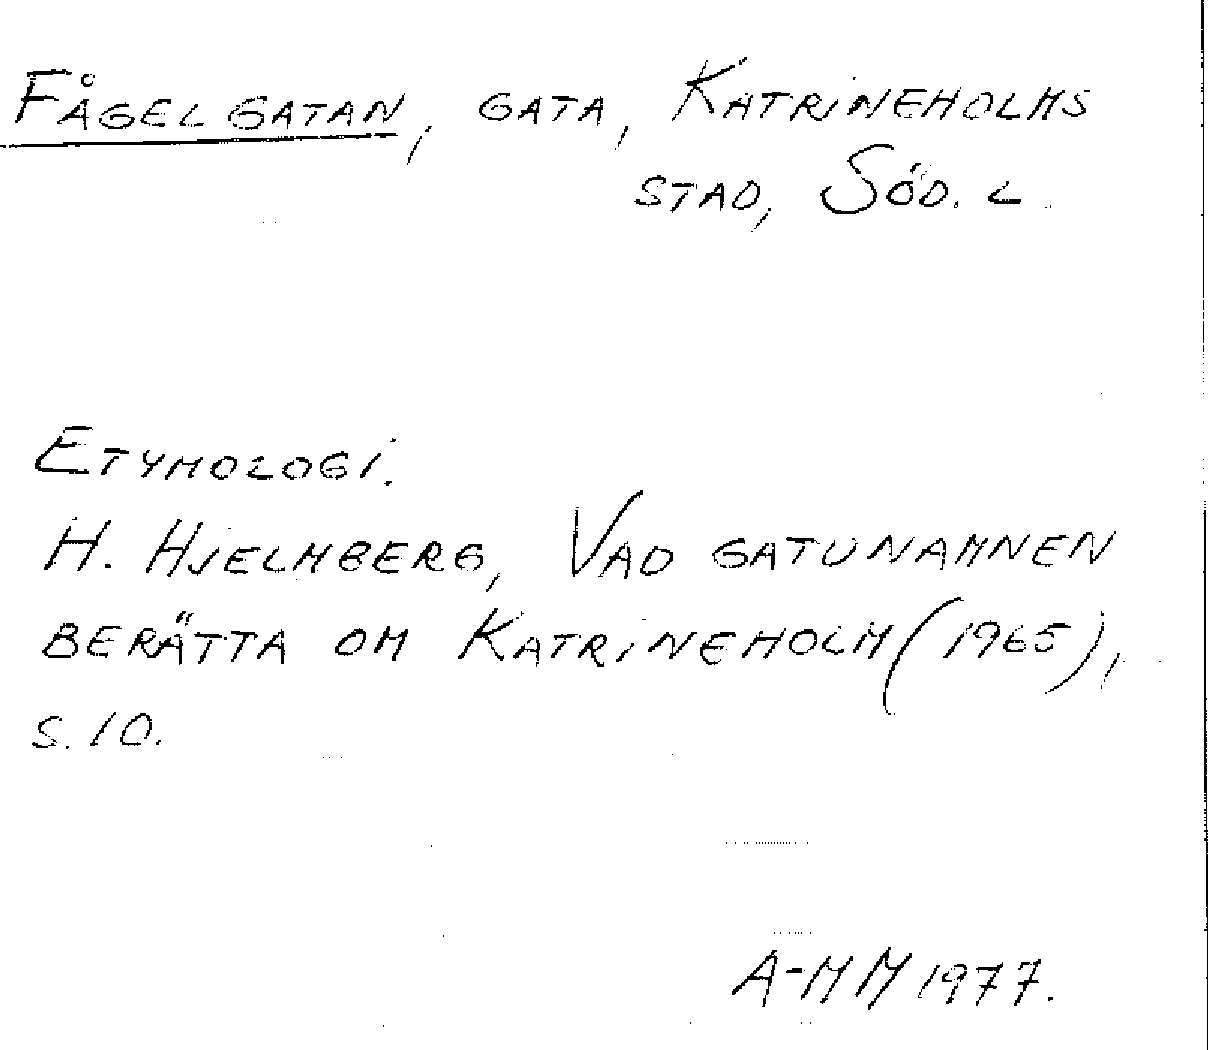 Fågelgatan, gata, Katrineholms
stad, Söd. L.
Etymologi.
H. Hjelmberg, Vad gatunamnen
berätta om Katrineholm (1965),
s. 10.
A-MM 1977.